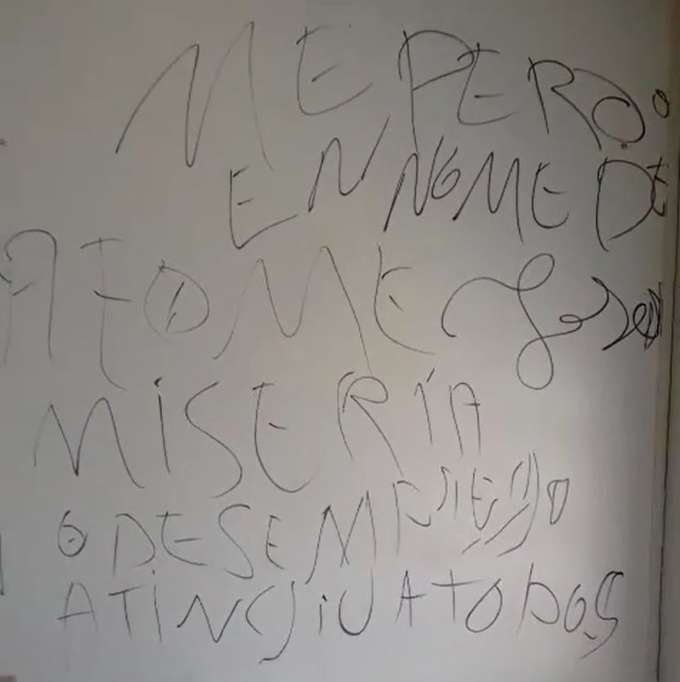 ME PERDO
EN NOME DE
A FOME Jesus
MISERÍA
O DESEMPREGO
ATINGIU A TODOS